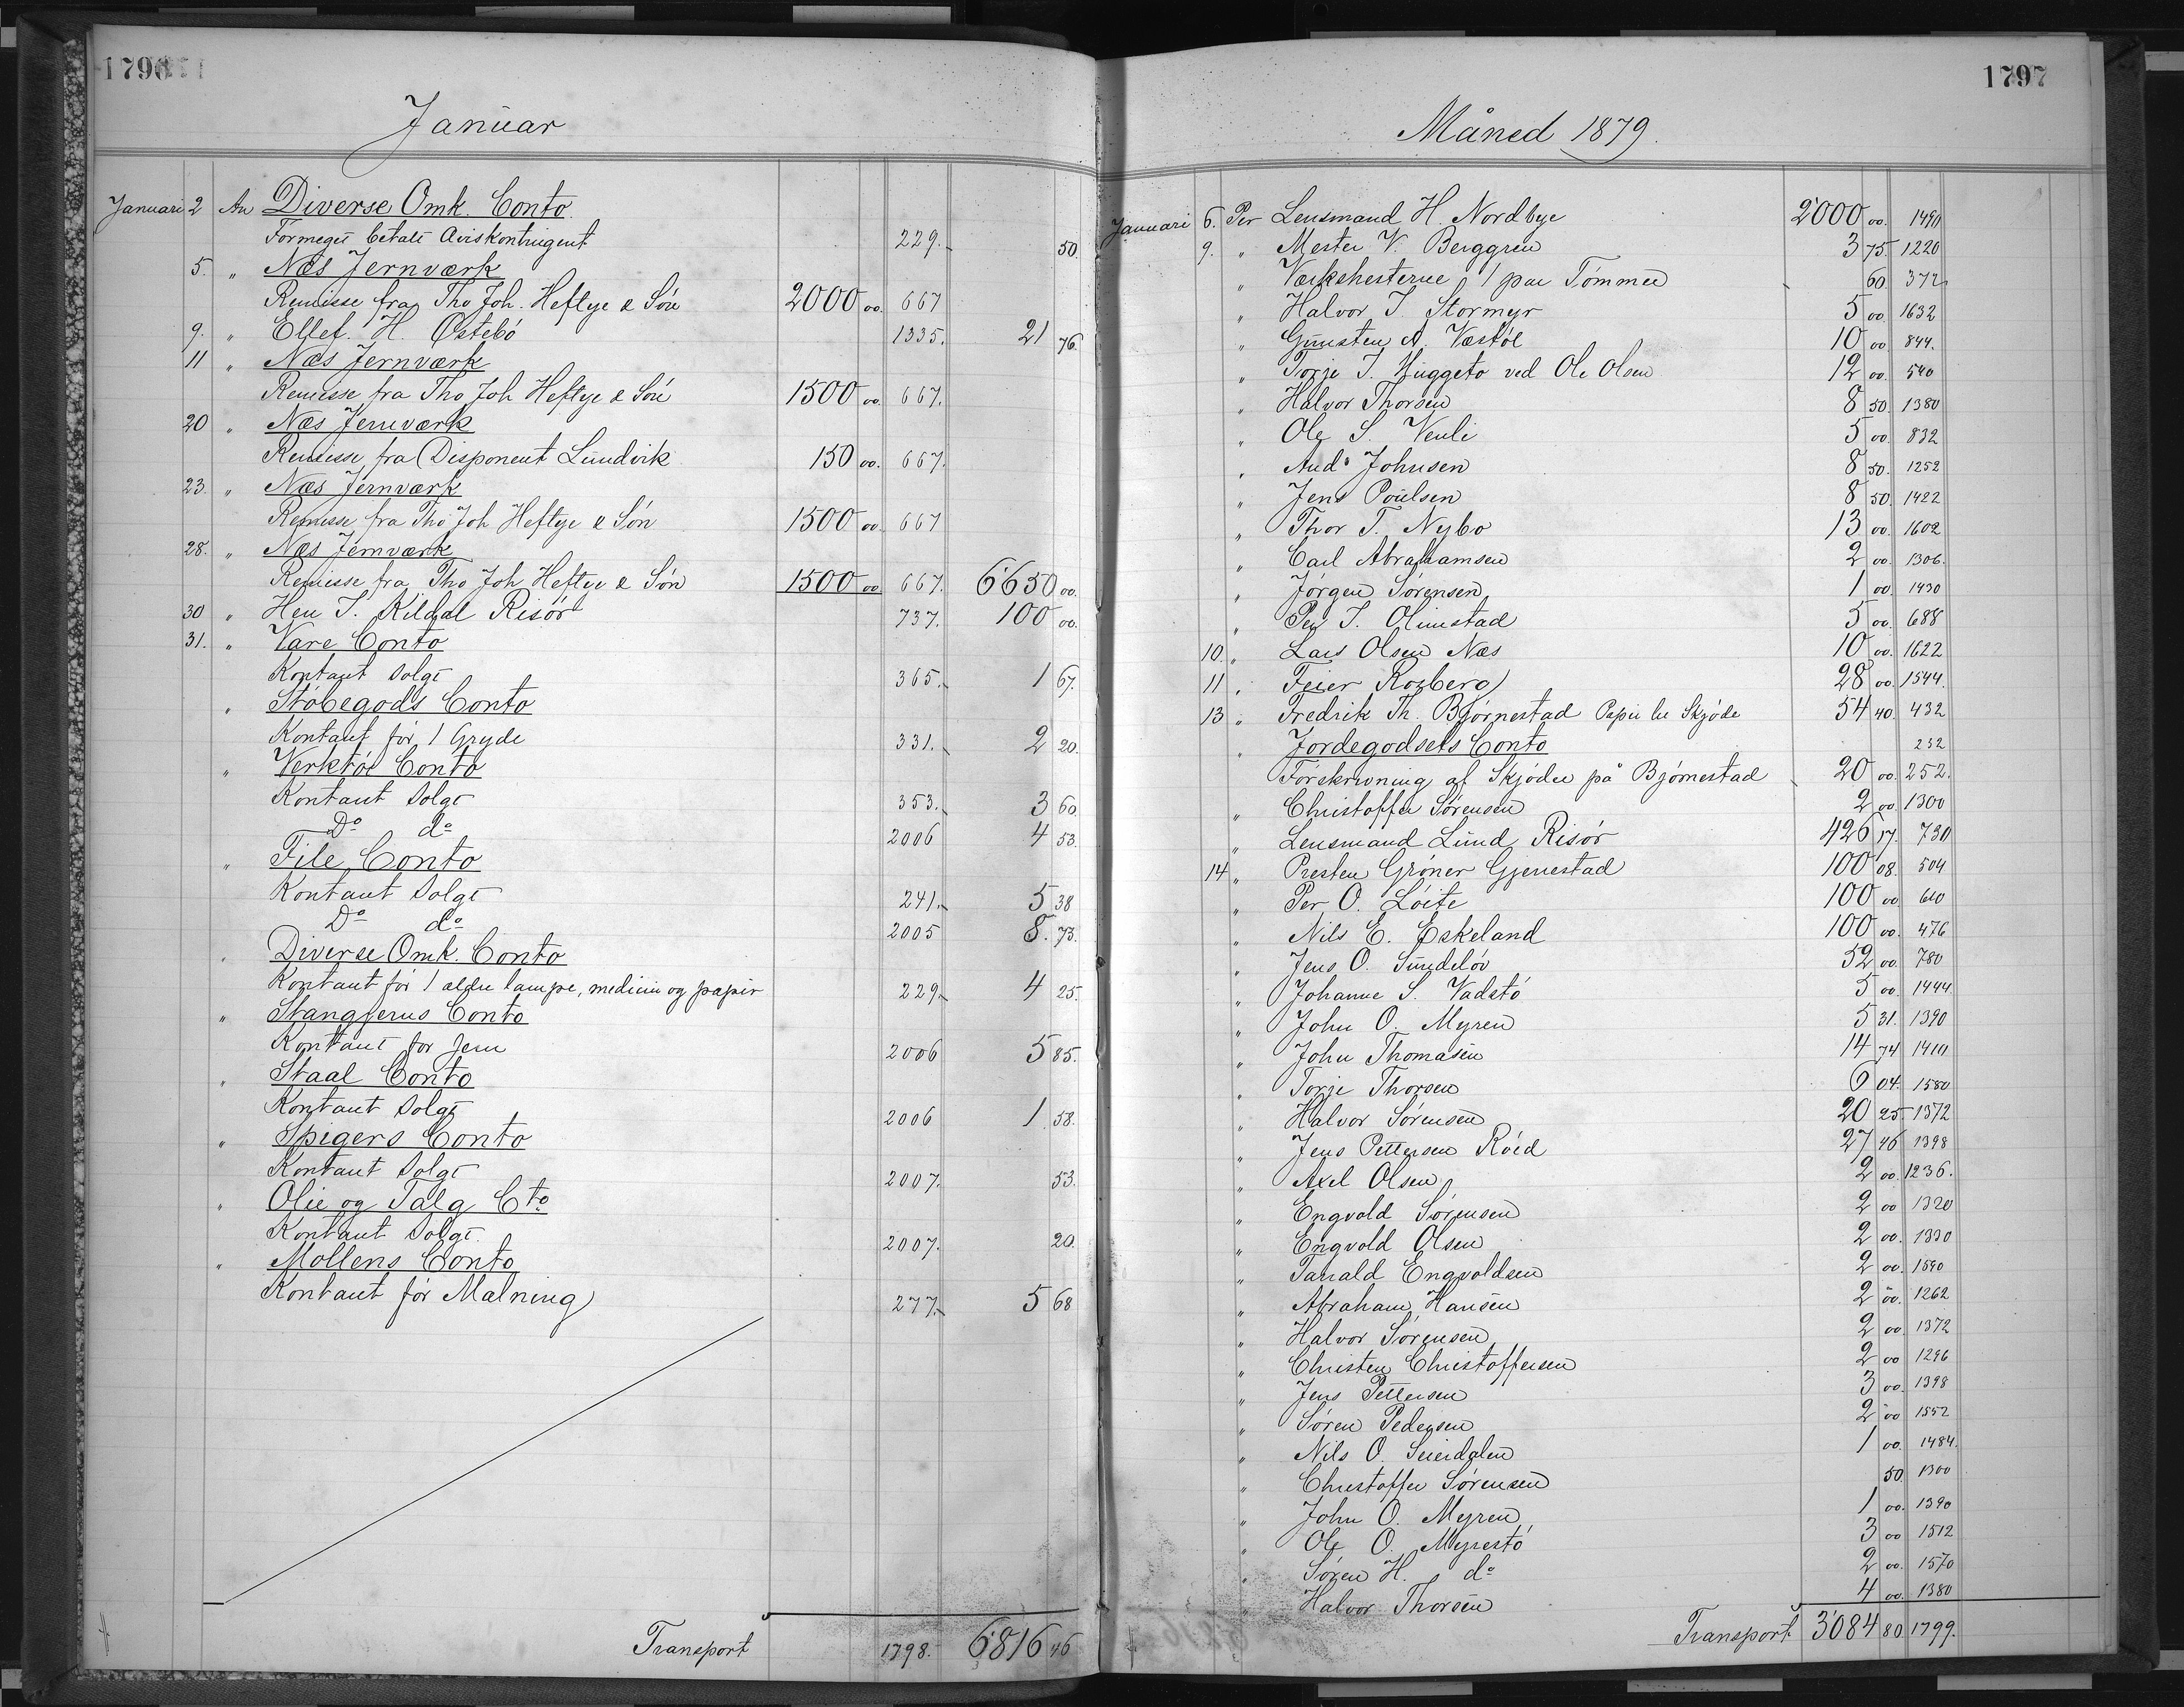 1796
Januar
Januari 2 An Diverse Omk. Conto
Formeget betalt Aviskontingent 229. 50.
5. " Næs Jernværk
Remisse fra Tho Joh. Heftye & Sön 2000 00. 667
9. " Ellef. H. Østebö 1335. 21 76.
11 " Næs Jernværk
Remisse fra Tho Joh Heftye & Sön 1500 00. 667.
20 " Næs Jernværk
Remisse fra Disponent Lundvik 150 00. 667.
23. " Næs Jernværk
Remisse fra Tho Joh Heftye & Sön 1500 00. 667
28. " Næs Jernværk
Remisse fra Tho Joh Heftye & Sön 1500 00. 667. 6650 00.
30 " Hen J. Kildal Risör 737. 100 00.
31. " Vare Conto
Kontant Solgt 365. 1 67.
" Stöbegods Conto
Kontant för 1 Gryde 331. 2 20.
" Verktöi Conto
Kontant Solgt 353. 3 60.
Do do 2006 4 53.
" File Conto
Kontant Solgt 241. 5 38
Do do 2005 8. 73.
" Diverse Omk. Conto
Kontant för 1 ældre lampe, medicin og papir 229. 4 25.
" Stangjerns Conto
Kontant for Jern 2006 5 85.
" Staal Conto
Kontant Solgt 2006 1 58.
" Spigers Conto
Kontant Solgt 2007. 53.
" Olie og Talg Cto
Kontant Solgt. 2007. 20.
" Mollens Conto
Kontant för Malning 277. 5 68
Transport 1798. 6816 46
1797
Måned 1879.
Januari 6. Per Lensmand H. Nordbye 2000 00. 1490
9. " Mester V. Berggren 3 75. 1220
" Værkshesterne 1 par Tömmer 60. 372
" Halvor J. Stormyr 5 00. 1632
" Gunsten A. Væstöl 10 00. 844.
" Torje J. Huggeto ved Ole Olsen 12 00. 540
" Halvor Thorsen 8 50. 1380
" Ole S. Venli 5 00. 832
" Ands Johnsen 8 50. 1252
" Jens Poulsen 8 50. 1422
" Thor T. Nybo 13 00. 1602
" Carl Abrahamsen 2 00. 1306.
" Jörgen Sörensen 1 00. 1430
" Per J. Olimstad 5 00. 688
10. " Lars Olsen Næs 10 00. 1622
11 " Feier Rosberg 28 00. 1544.
13 " Fredrik Th. Björnestad Papir til Skjöde 54 40. 432
" Jordegodsets Conto 252
Forskrivning af Skjöder på Björnestad 20 00. 252.
" Christoffer Sörensen 2 00 1300
" Lensmand Lund Risör 426 17. 730
14 " Presten Gröner Gjerrestad 100 08. 504
" Per O. Löite 100 00 610
" Nils E. Eskeland 100 00. 476
" Jens O. Sundelöv 52 00. 780
" Johanne S. Vadstö 5 00. 1444.
" John O. Myren 5 31. 1390
" John Thomasen 14 74 1410
" Torje Thorsen 6 04. 1580
" Halvor Sörensen 20 25 1372
" Jens Pettersen Röed 27 46 1398
" Axel Olsen 2 00. 1236.
" Engvold Sörensen 2 00 1320
" Engvold Olsen 2 00. 1330
" Tarald Engvoldsen 2 00. 1590
" Abraham Hansen 2 00. 1262
" Halvor Sörensen 2 00. 1372
" Christen Christoffersen 2 00 1296
" Jens Pettersen 3 00. 1398
" Sören Pedersen 2 00 1552
" Nils O. Seierdalen 1 00. 1484.
" Christoffer Sörensen 50. 1300
" John O. Myren 1 00. 1390
" Ole O. Myrestö 3 00 1512
" Sören H. do 2 00. 1570
" Halvor Thorsen 4 00. 1380
Transport 3084 80 1799.